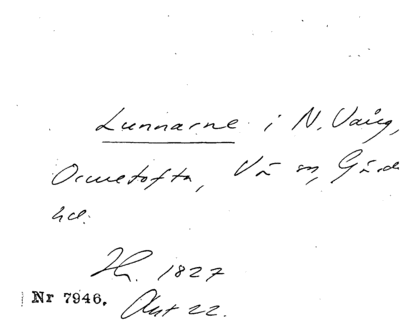 Lunnarne i N. Vång,
Ormetofta, Vä sn, Gärds
hd.
1827
Nr 7946. Akt 22.